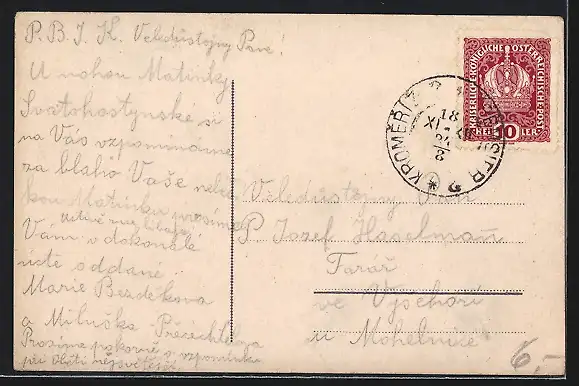 P. B. J. K. Veledůstojny Pane!
U nohou Matinky
Svatohostynské si
na Vás vzpomínáme
za blaho Vaše nebes
kou Matinku prosíme
Vám v dokonalé
úctě oddané
Marie Bezděkova
a Miluška
Prosíme pokorně o vzpomínku
při Oběti nejsvětější
KAISERLICHE KÖNIGLICHE ÖSTERREICHISCHE POST
10 HELLER
KROMĚŘÍŽ
18
XI
8
Veledůstojny Pan
P Josef Haselman
Farář
ve
u Mohelnice
6,-